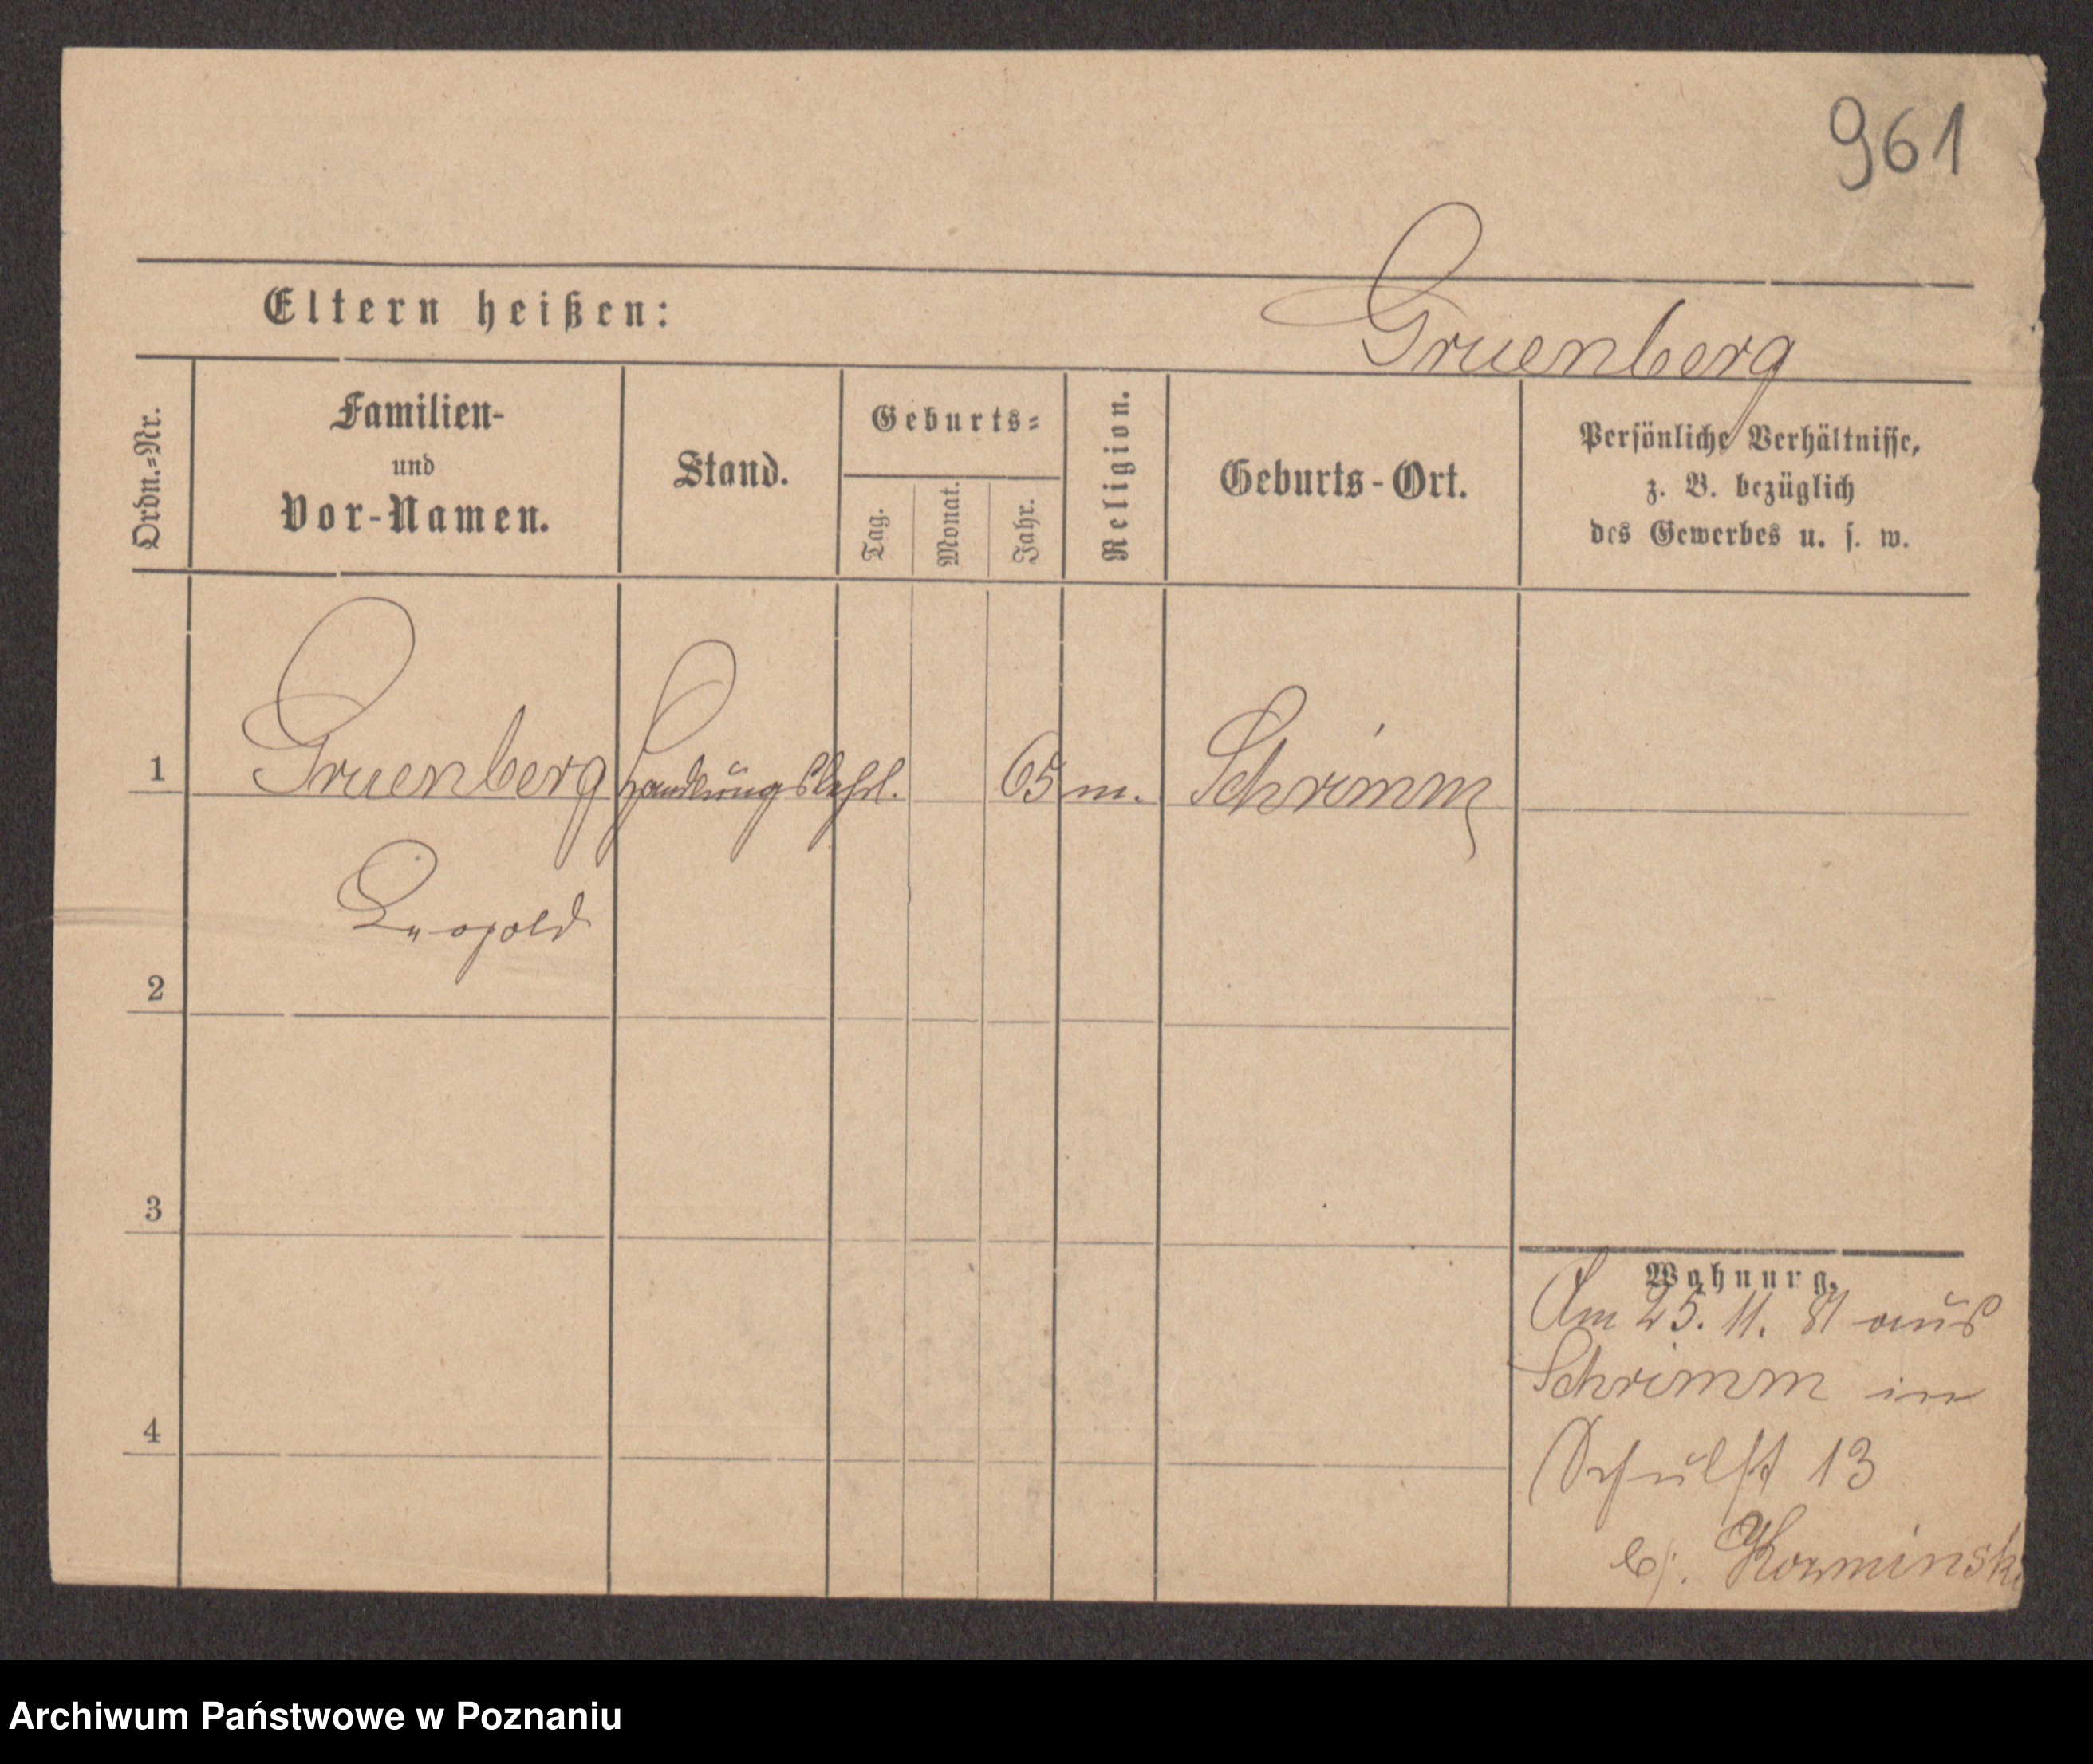 961
Gruenberg
Eltern heißen:
Ordn.=Nr.
Familien-
und
Vor-Namen.
Stand.
Geburts=
Tag.
Monat.
Jahr.
Religion.
Geburts-Ort.
Persönliche Verhältnisse,
z. B. bezüglich
des Gewerbes u. s. w.
1 Gruenberg Handlungslehrl. 65 m. Schrimm
Leopold
2
3
4
Wohnung.
Am 25. 11. 81 aus
Schrimm in
Schulst 13
b/.
Archiwum Państwowe w Poznaniu